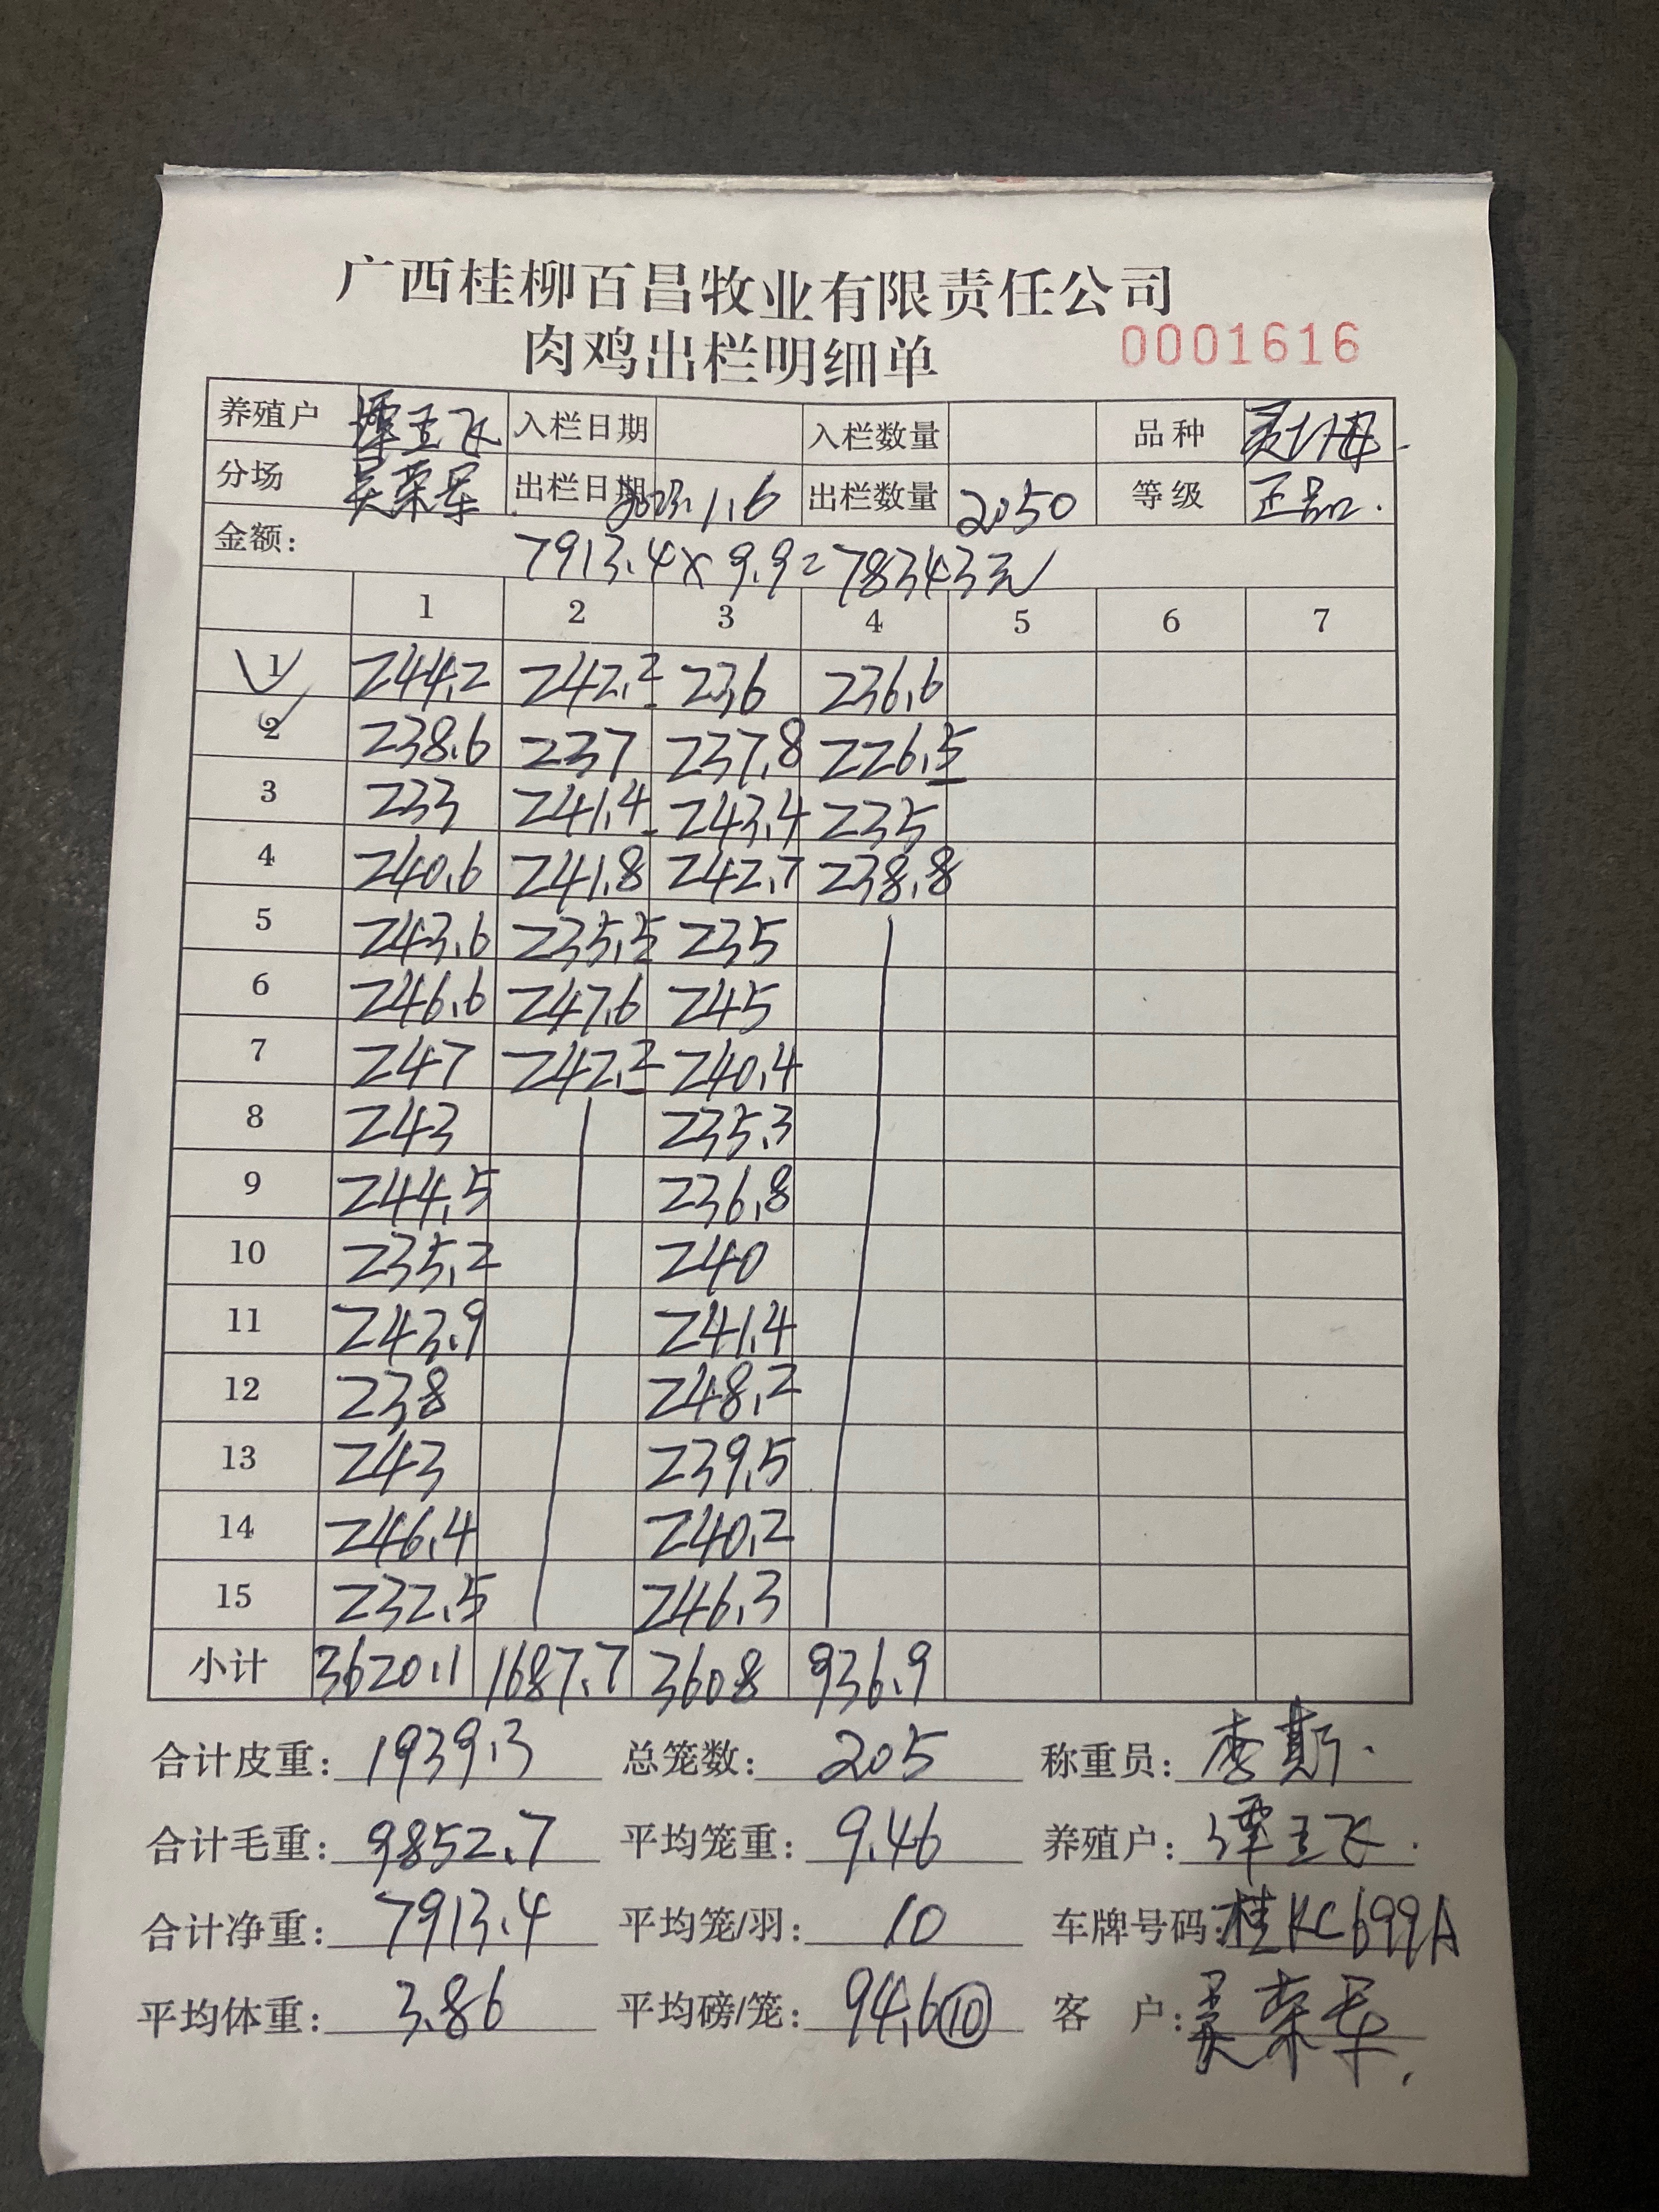 广西桂柳百昌牧业有限责任公司
肉鸡出栏明细单 0001616
养殖户 谭王飞 入栏日期 入栏数量 品种
分场 吴荣军 出栏日期 2023.1.6 出栏数量 2050 等级 正品.
金额: 7913.4×9.9=78343元
1 2 3 4 5 6 7
1 244.2 242.2 236 236.6
2 238.6 237 237.8 226.5
3 233 241.4 243.4 235
4 240.6 241.8 242.7 238.8
5 243.6 235.5 235
6 246.6 247.6 245
7 247 242.2 240.4
8 243 235.3
9 244.5 236.8
10 235.2 240
11 243.9 241.4
12 238 248.2
13 243 239.5
14 246.4 240.2
15 232.5 246.3
小计 3620.1 1687.7 3608 936.9
合计皮重: 1939.3 总笼数: 205 称重员: 李斯.
合计毛重: 9852.7 平均笼重: 9.46 养殖户: 谭王飞.
合计净重: 7913.4 平均笼/羽: 10 车牌号码: 桂KC699A
平均体重: 3.86 平均磅/笼: 94.6⑩ 客 户: 吴荣军.